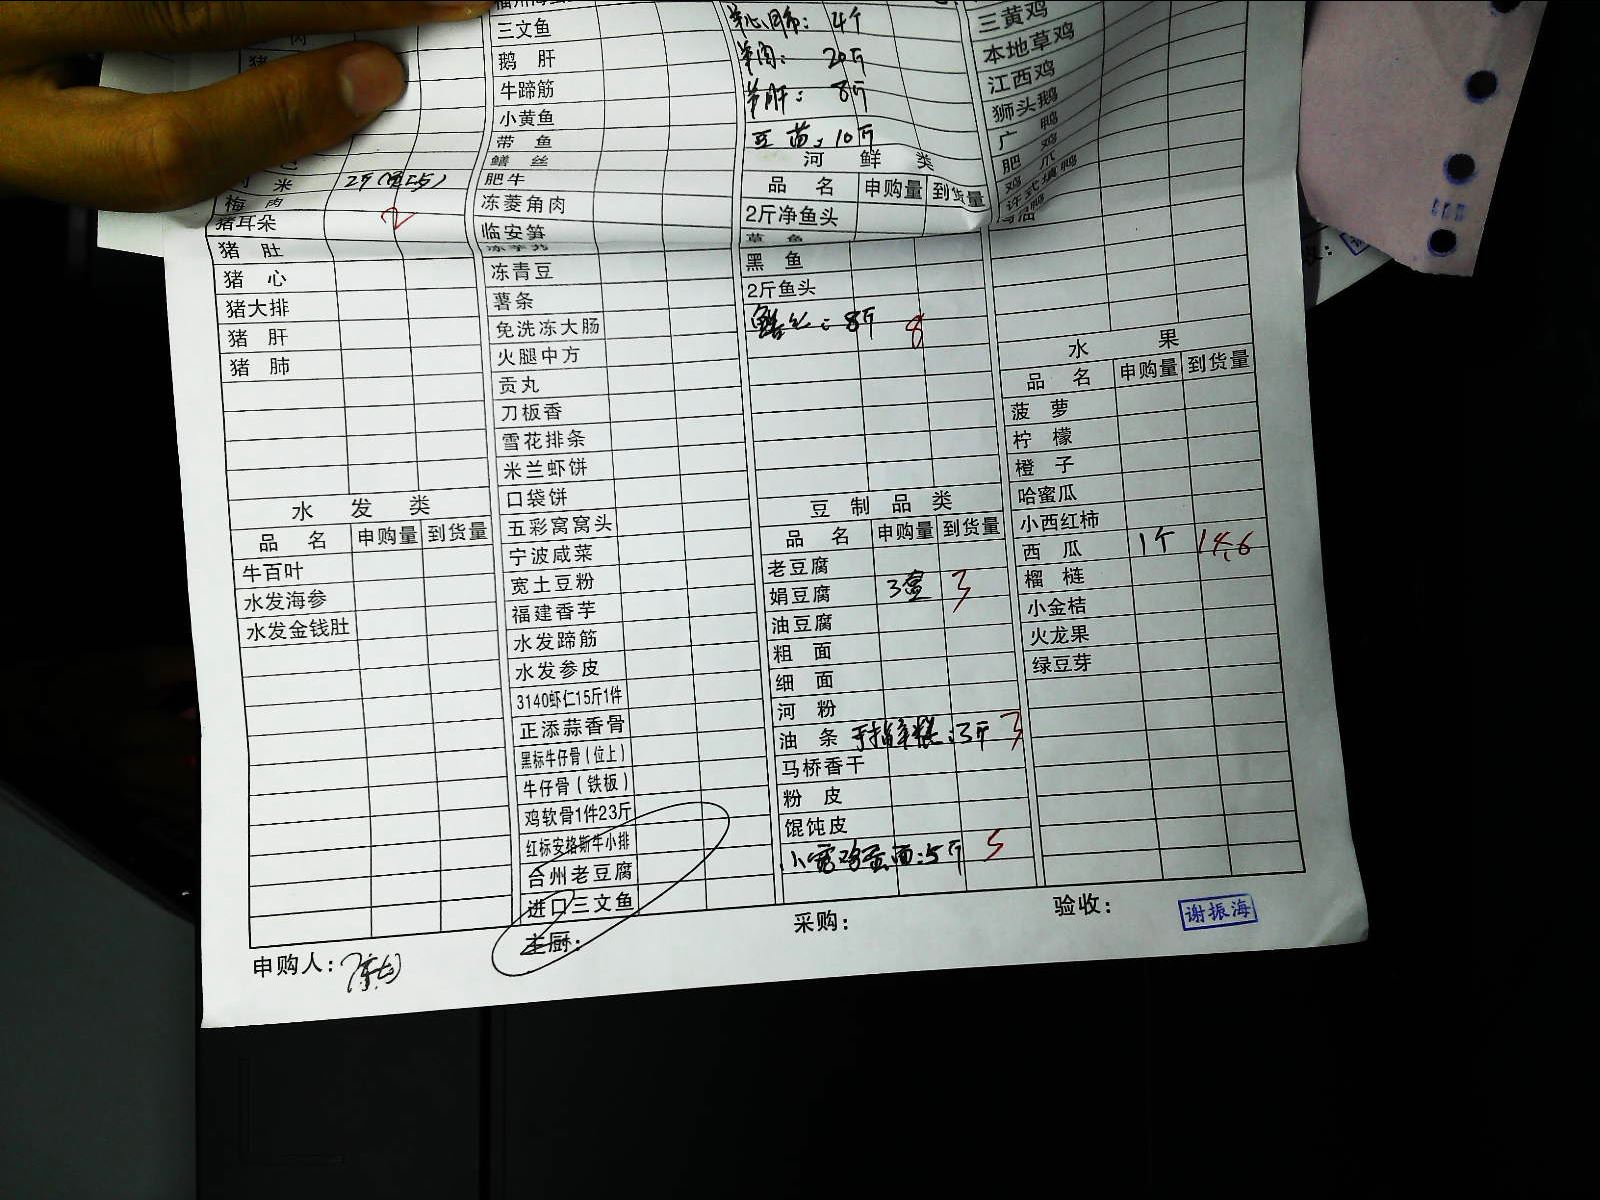 米
梅 肉
猪耳朵 2
猪 肚
猪 心
猪大排
猪 肝
猪 肺
水 发 类
品 名 申购量 到货量
牛百叶
水发海参
水发金钱肚
三文鱼
鹅 肝
牛蹄筋
小黄鱼
带 鱼
鳝 丝
肥牛
冻菱角肉
临安笋
冻青豆
薯条
免洗冻大肠
火腿中方
贡丸
刀板香
雪花排条
米兰虾饼
口袋饼
五彩窝窝头
宁波咸菜
宽土豆粉
福建香芋
水发蹄筋
水发参皮
3140虾仁15斤1件
正添蒜香骨
黑标牛仔骨(位上)
牛仔骨(铁板)
鸡软骨1件23斤
红标安格斯牛小排
台州老豆腐
进口三文鱼
4个
羊肉: 20斤
羊肝: 8斤
豆苗: 10斤
河 鲜 类
品 名 申购量 到货量
2斤净鱼头
草 鱼
黑 鱼
2斤鱼头
鳝丝: 8斤 8
豆 制 品 类
品 名 申购量 到货量
老豆腐
娟豆腐 3盒 3
油豆腐
粗 面
细 面
河 粉
油 条 手指年糕:3斤 3
马桥香干
粉 皮
馄饨皮
鸡蛋面:5斤 5
三黄鸡
本地草鸡
江西鸡
狮头鹅
广 鸭
肥 鸡
鸡 爪
水 果
品 名 申购量 到货量
菠 萝
柠 檬
橙 子
哈蜜瓜
小西红柿
西 瓜 1个 14.6
榴 梿
小金桔
火龙果
绿豆芽
申购人:
主厨:
采购:
验收: 谢振海